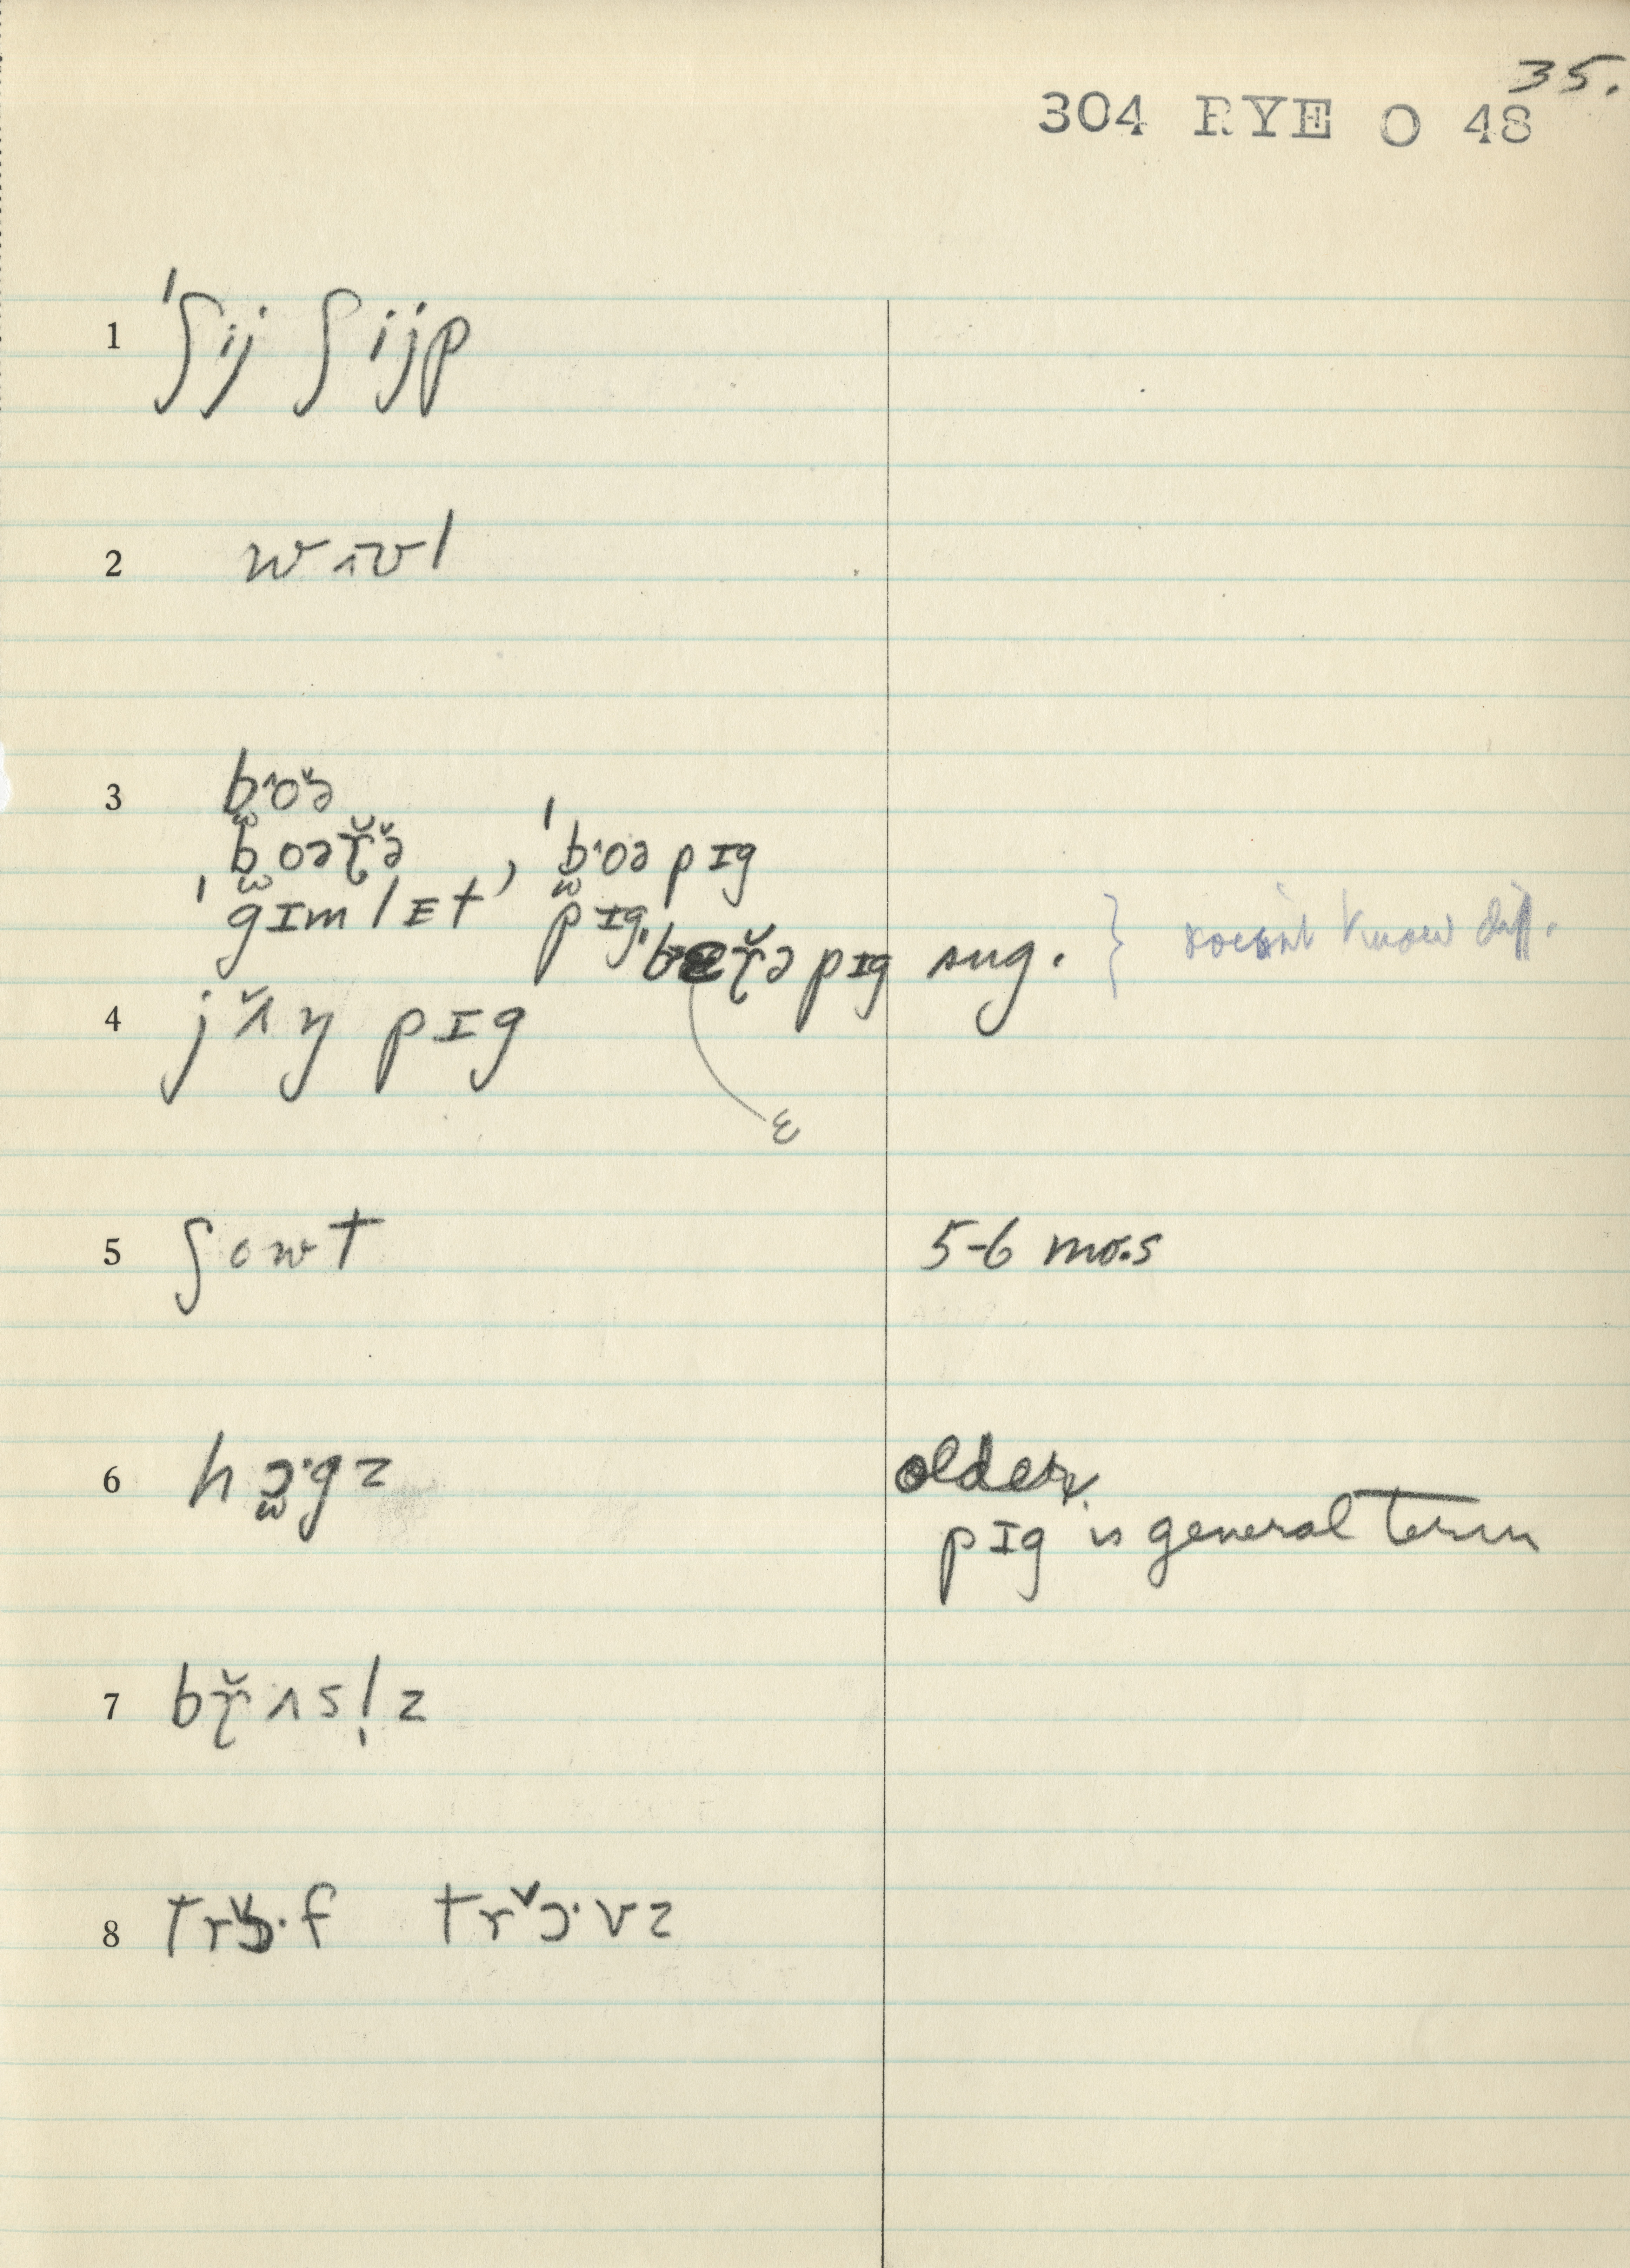 35.
304 RYE O 48
1 ˈʃij ʃijp
2 wɪvl
3 b̫ˑoə̆
b̫oəɽ̆ə̆, ˈb̫ˑoə pɪg
ˈgɪmlɛt pɪg
ˈbɛɽ̆ə pɪg sug. } doesn't know diff.
4 jʌ̆ŋ pɪg
ɛ
5 ʃowt 5-6 mo.s
6 hɔ̫ˑgz older.
pɪg is general term
7 bɽ̆ʌsl̩z
8 trɔ̆ˑf trɔ̆ˑvz